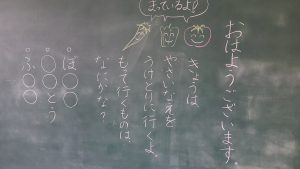 まっているよ!
おはようございます。
きょうは、
やさいなえを
うけとりに行くよ。
もって行くものは、
なにかな?
。ぼ○○
。○○とう
。ふ○○